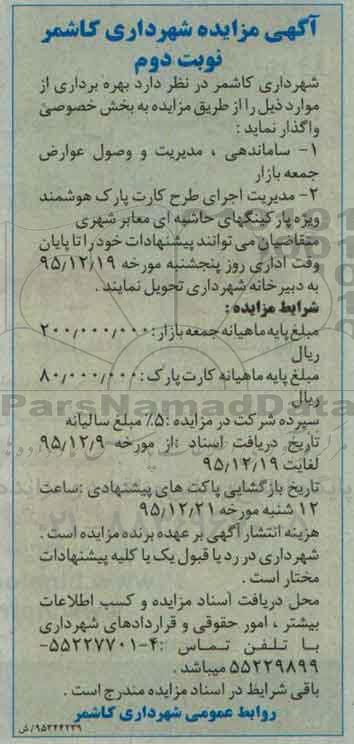 آگهی مزایده شهرداری کاشمر
نوبت دوم
شهرداری کاشمر در نظر دارد بهره برداری از
موارد ذیل را از طریق مزایده به بخش خصوصی
واگذار نماید :
۱- ساماندهی ، مدیریت و وصول عوارض
جمعه بازار
۲- مدیریت اجرای طرح کارت پارک هوشمند
ویژه پارکینگهای حاشیه ای معابر شهری
متقاضیان می توانند پیشنهادات خود را تا پایان
وقت اداری روز پنجشنبه مورخه ۹۵/۱۲/۱۹
به دبیرخانه شهرداری تحویل نمایند .
شرایط مزایده :
مبلغ پایه ماهیانه جمعه بازار : ۲۰۰/۰۰۰/۰۰۰
ریال
مبلغ پایه ماهیانه کارت پارک : ۸۰/۰۰۰/۰۰۰
ریال
ParsNamadData
سپرده شرکت در مزایده :۵٪ مبلغ سالیانه
تاریخ دریافت اسناد :از مورخه ۹۵/۱۲/۹
لغایت ۹۵/۱۲/۱۹
تاریخ بازگشایی پاکت های پیشنهادی :ساعت
۱۲ شنبه مورخه ۹۵/۱۲/۲۱
هزینه انتشار آگهی بر عهده برنده مزایده است .
شهرداری در رد یا قبول یک یا کلیه پیشنهادات
مختار است .
محل دریافت اسناد مزایده و کسب اطلاعات
بیشتر ، امور حقوقی و قراردادهای شهرداری
با تلفن تماس :۴-۵۵۲۲۷۷۰۱-
۵۵۲۲۹۸۹۹ میباشد .
باقی شرایط در اسناد مزایده مندرج است .
روابط عمومی شهرداری کاشمر
۹۵۳۴۴۲۳۹/ش